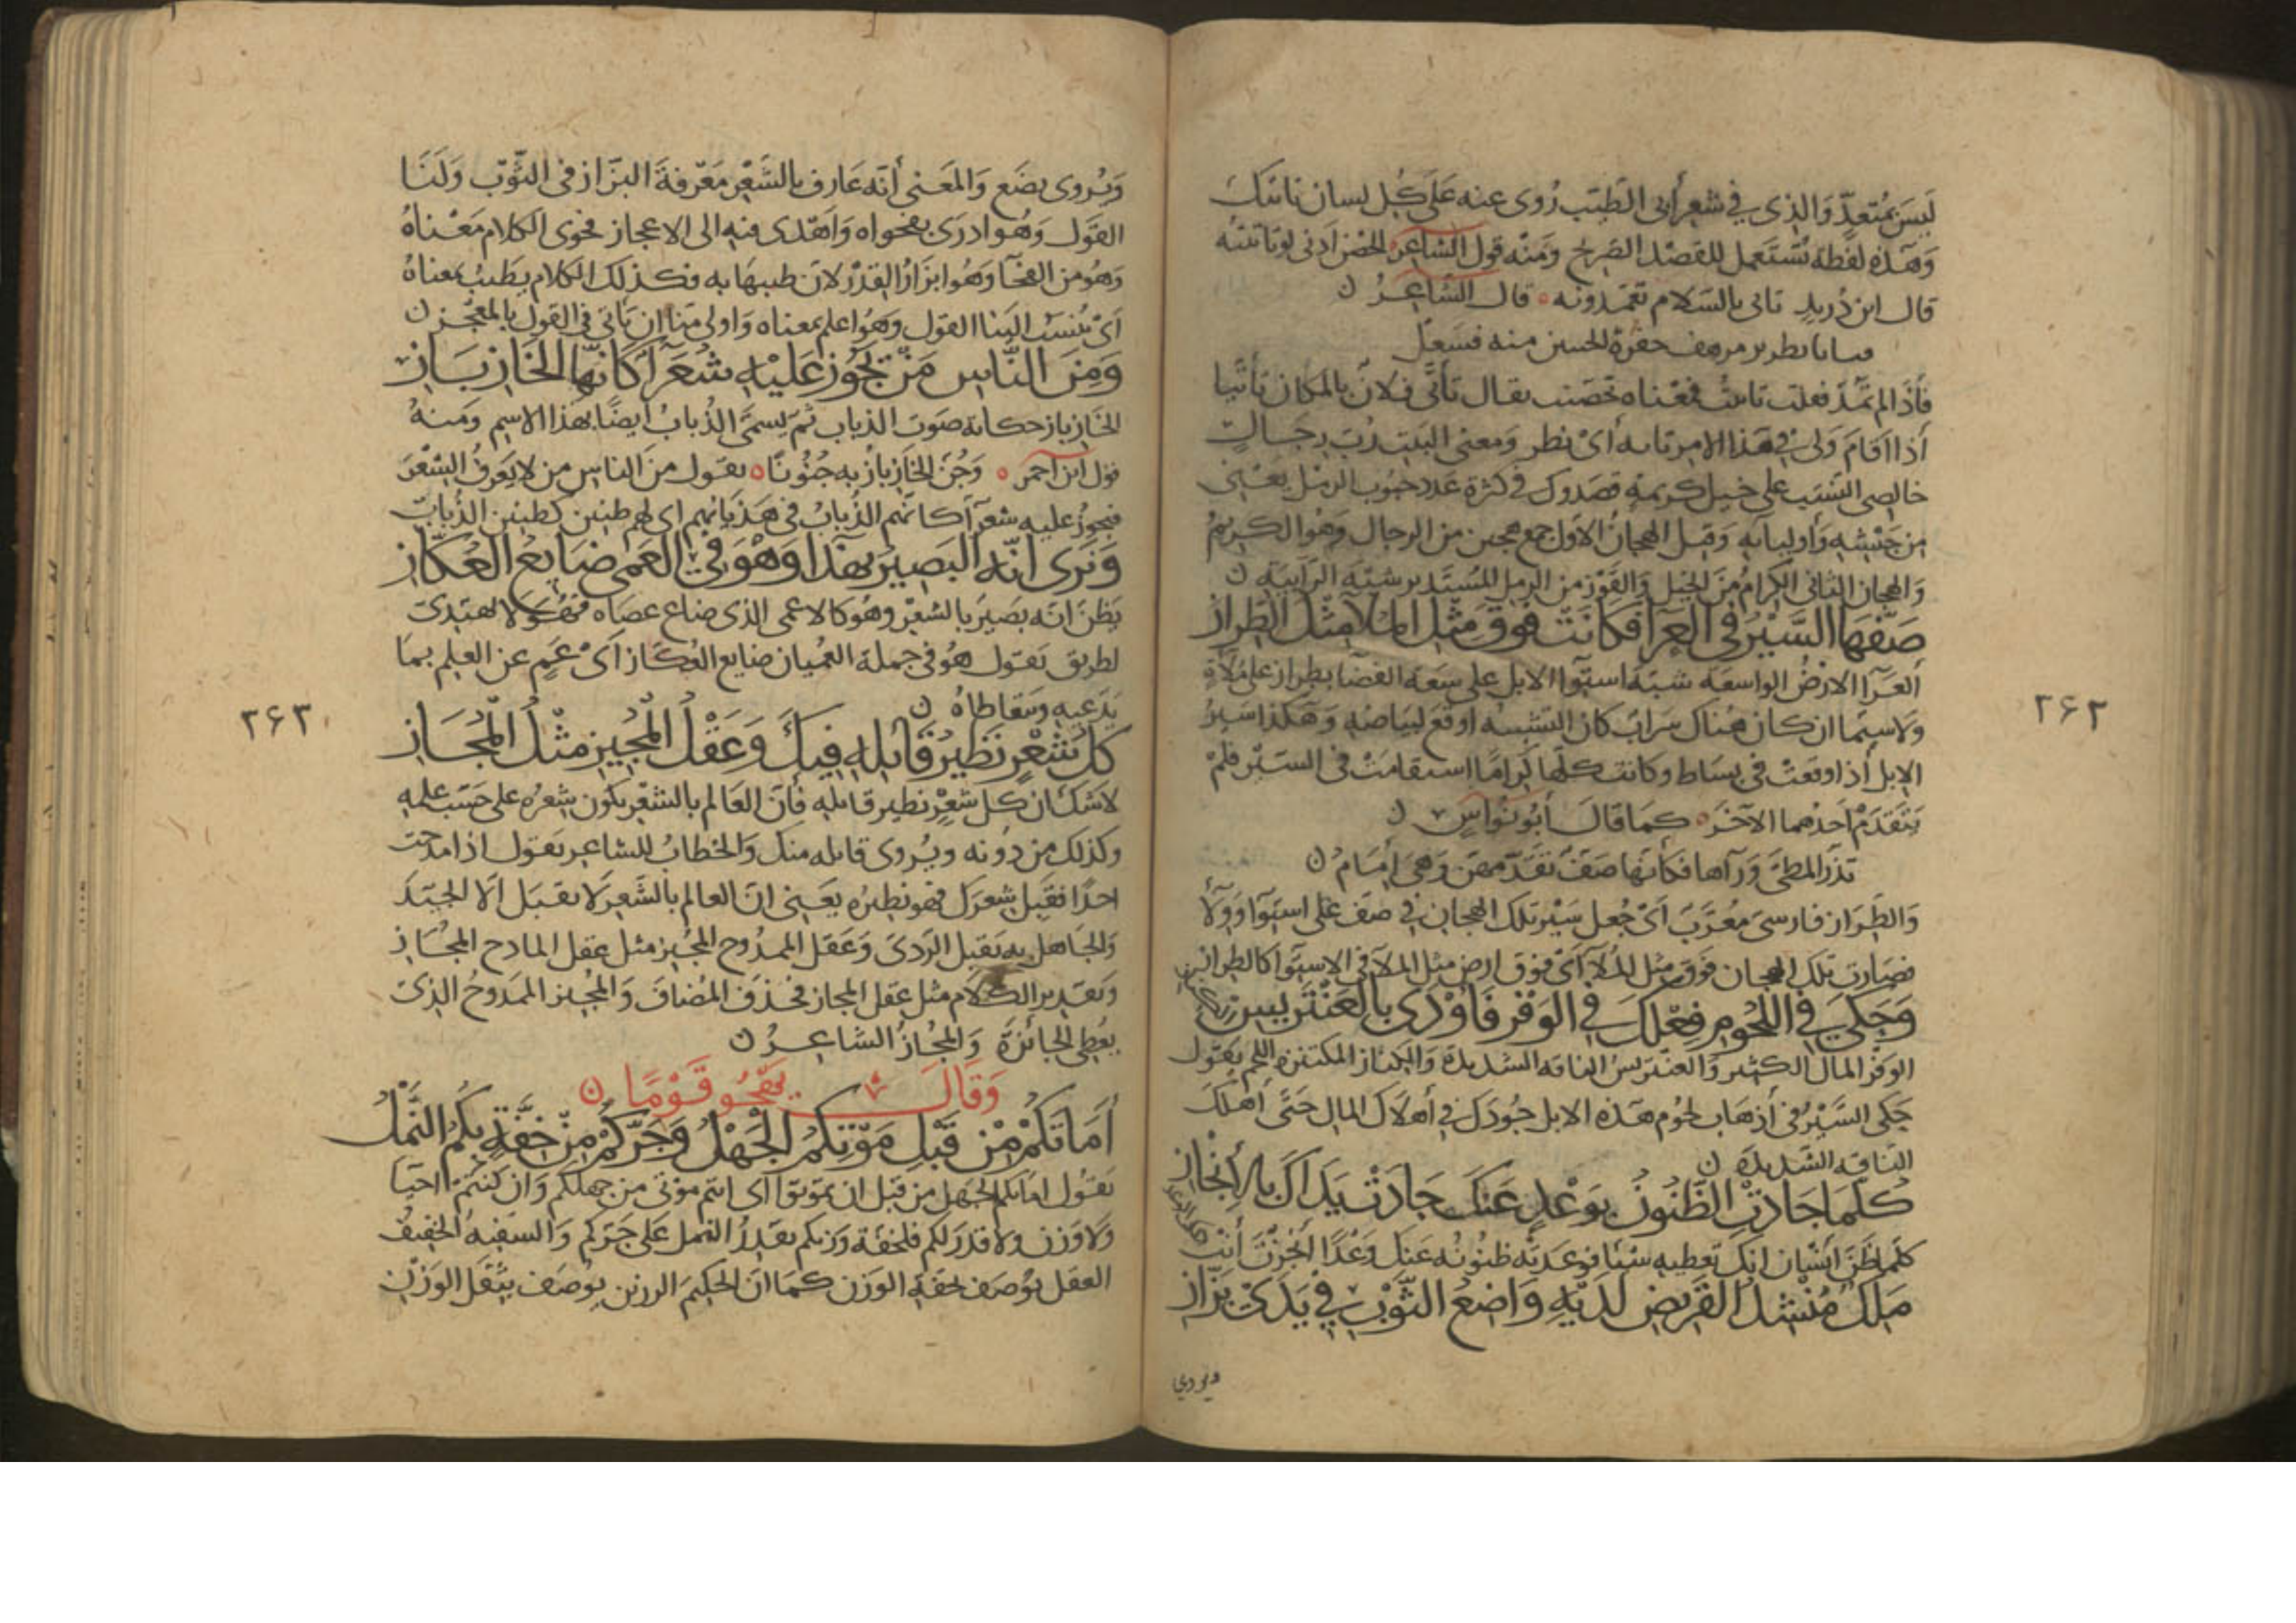 ليس بمتعدٍّ والذي في شعر أبي الطيب روى عنه على كل لسان تأييك
وهذه لفظة تستعمل للقصد الصريح ومنه قول الشاعر الحصن أدنى لو تأييته
قال ابن دريد تاتي بالسلام تعمدونه قال الشاعر
فتايا بطرير مرهف حفرة الحسن منه فسعل
فأذا لم تمد فعلت تاييت فمعناه تحصنت يقال تأيى فلان بالمكان تأييا
أذا اقام ولي في هذا الامر تايه أي نظر ومعنى البيت رب رجال
خالصي النسب على خيل كريمة قصدوك في كثرة عدد حبوب الرمل يعني
من جيشه وأوليايه وقيل الهجان الاول جمع هجين من الرجال وهو الكريم
والهجان الثاني الكرام من الخيل والقوز من الرمل المستدير شبه الرابية
صفها السير في العرا فكانت فوق مثل الملا مثل الطراز
العرا الارض الواسعة شبه استوا الابل على سعة الفضا بطراز على ملاة
ولا سيما ان كان هناك سراب كان التشبيه اوقع لبياضه وهكذا سير
الابل أذا وقعت في بساط وكانت كلها كراما استقامت في السير فلم
يتقدم احدهما الآخر كما قال أبو نواس
تذر المطي ورآها فكأنها صف تقدمهن وهي امام
والطراز فارسي معرب أي جعل سير تلك الهجان في صف على استوا وولا
فصارت تلك الهجان فوق مثل الملا أي فوق ارض مثل الملا في الاستوا كالطراز
وحكى في اللحوم فعلك في الوفر فاودى بالعنتريس الكناز
الوفر المال الكثير والعنتريس الناقة الشديدة والكناز المكتنزة اللحم يقول
حكى السير في أذهاب لحوم هذه الابل جودك في أهلاك المال حتى أهلك
الناقة الشديدة
كلما جادت الظنون بوعد عنك جادت يداك بالإنجاز
كلما ظن انسان انك تعطيه شيئا فوعدته ظنونه عنك وعدا أنجزت أنت
ملك منشد القريض لديه واضع الثوب في يدي بزاز
ويروى
٢٦٢
ويروى يضع والمعنى أنه عارف بالشعر معرفة البزاز في الثوب ولنا
القول وهو ادرى بفحواه واهدى فيه الى الاعجاز فحوى الكلام معناه
وهو من الفحا وهو ابزار القدر لان طيبها به فكذلك الكلام يطيب بمعناه
أي ينسب الينا القول وهو اعلم بمعناه واولى منا ان يأتي في القول بالمعجز
ومن الناس من تجوز عليه شعرآ كانها الخازباز
الخازباز حكاية صوت الذباب ثم يسمى الذباب ايضا بهذا الاسم ومنه
قول ابن احمر وجن الخازباز به جنونا يقول من الناس من لا يعرف الشعر
فيجوز عليه شعرآ كانهم الذباب في هذيانهم اى لهم طنين كطنين الذباب
ويرى انه البصير بهذا وهو في العمى ضايع العكاز
يظن انه بصير بالشعر وهو كالاعمى الذي ضاع عصاه فهو لا يهتدي
لطريق يقول هو في جملة العميان ضايع العكاز أي عم عن العلم بما
يدعيه ويتعاطاه
كل شعر نظير قايله فيك وعقل المجيز مثل المجاز
لا شك ان كل شعر نظير قايله فان العالم بالشعر يكون شعره على حسب علمه
وكذلك من دونه ويروى قايله منك والخطاب للشاعر يقول اذا مدحت
احدا فقبل شعرك فهو نظيره يعني ان العالم بالشعر لا يقبل الا الجيد
والجاهل به يقبل الردى وعقل الممدوح المجيز مثل عقل المادح المجاز
وتقدير الكلام مثل عقل المجاز فحذف المضاف والمجيز الممدوح الذي
يعطى الجائزة والمجاز الشاعر
وقال يهجو قوما
أماتكم من قبل موتكم الجهل وجركم من خفة بكم النمل
يقول اماتكم الجهل من قبل ان تموتوا أي انتم موتى من جهلكم وان كنتم احيا
ولا وزن ولا قدر لكم فلخفة وزنكم يقدر النمل على جركم والسفيه الخفيف
العقل يوصف بخفة الوزن كما ان الحكيم الرزين يوصف بثقل الوزن
٢٦٣